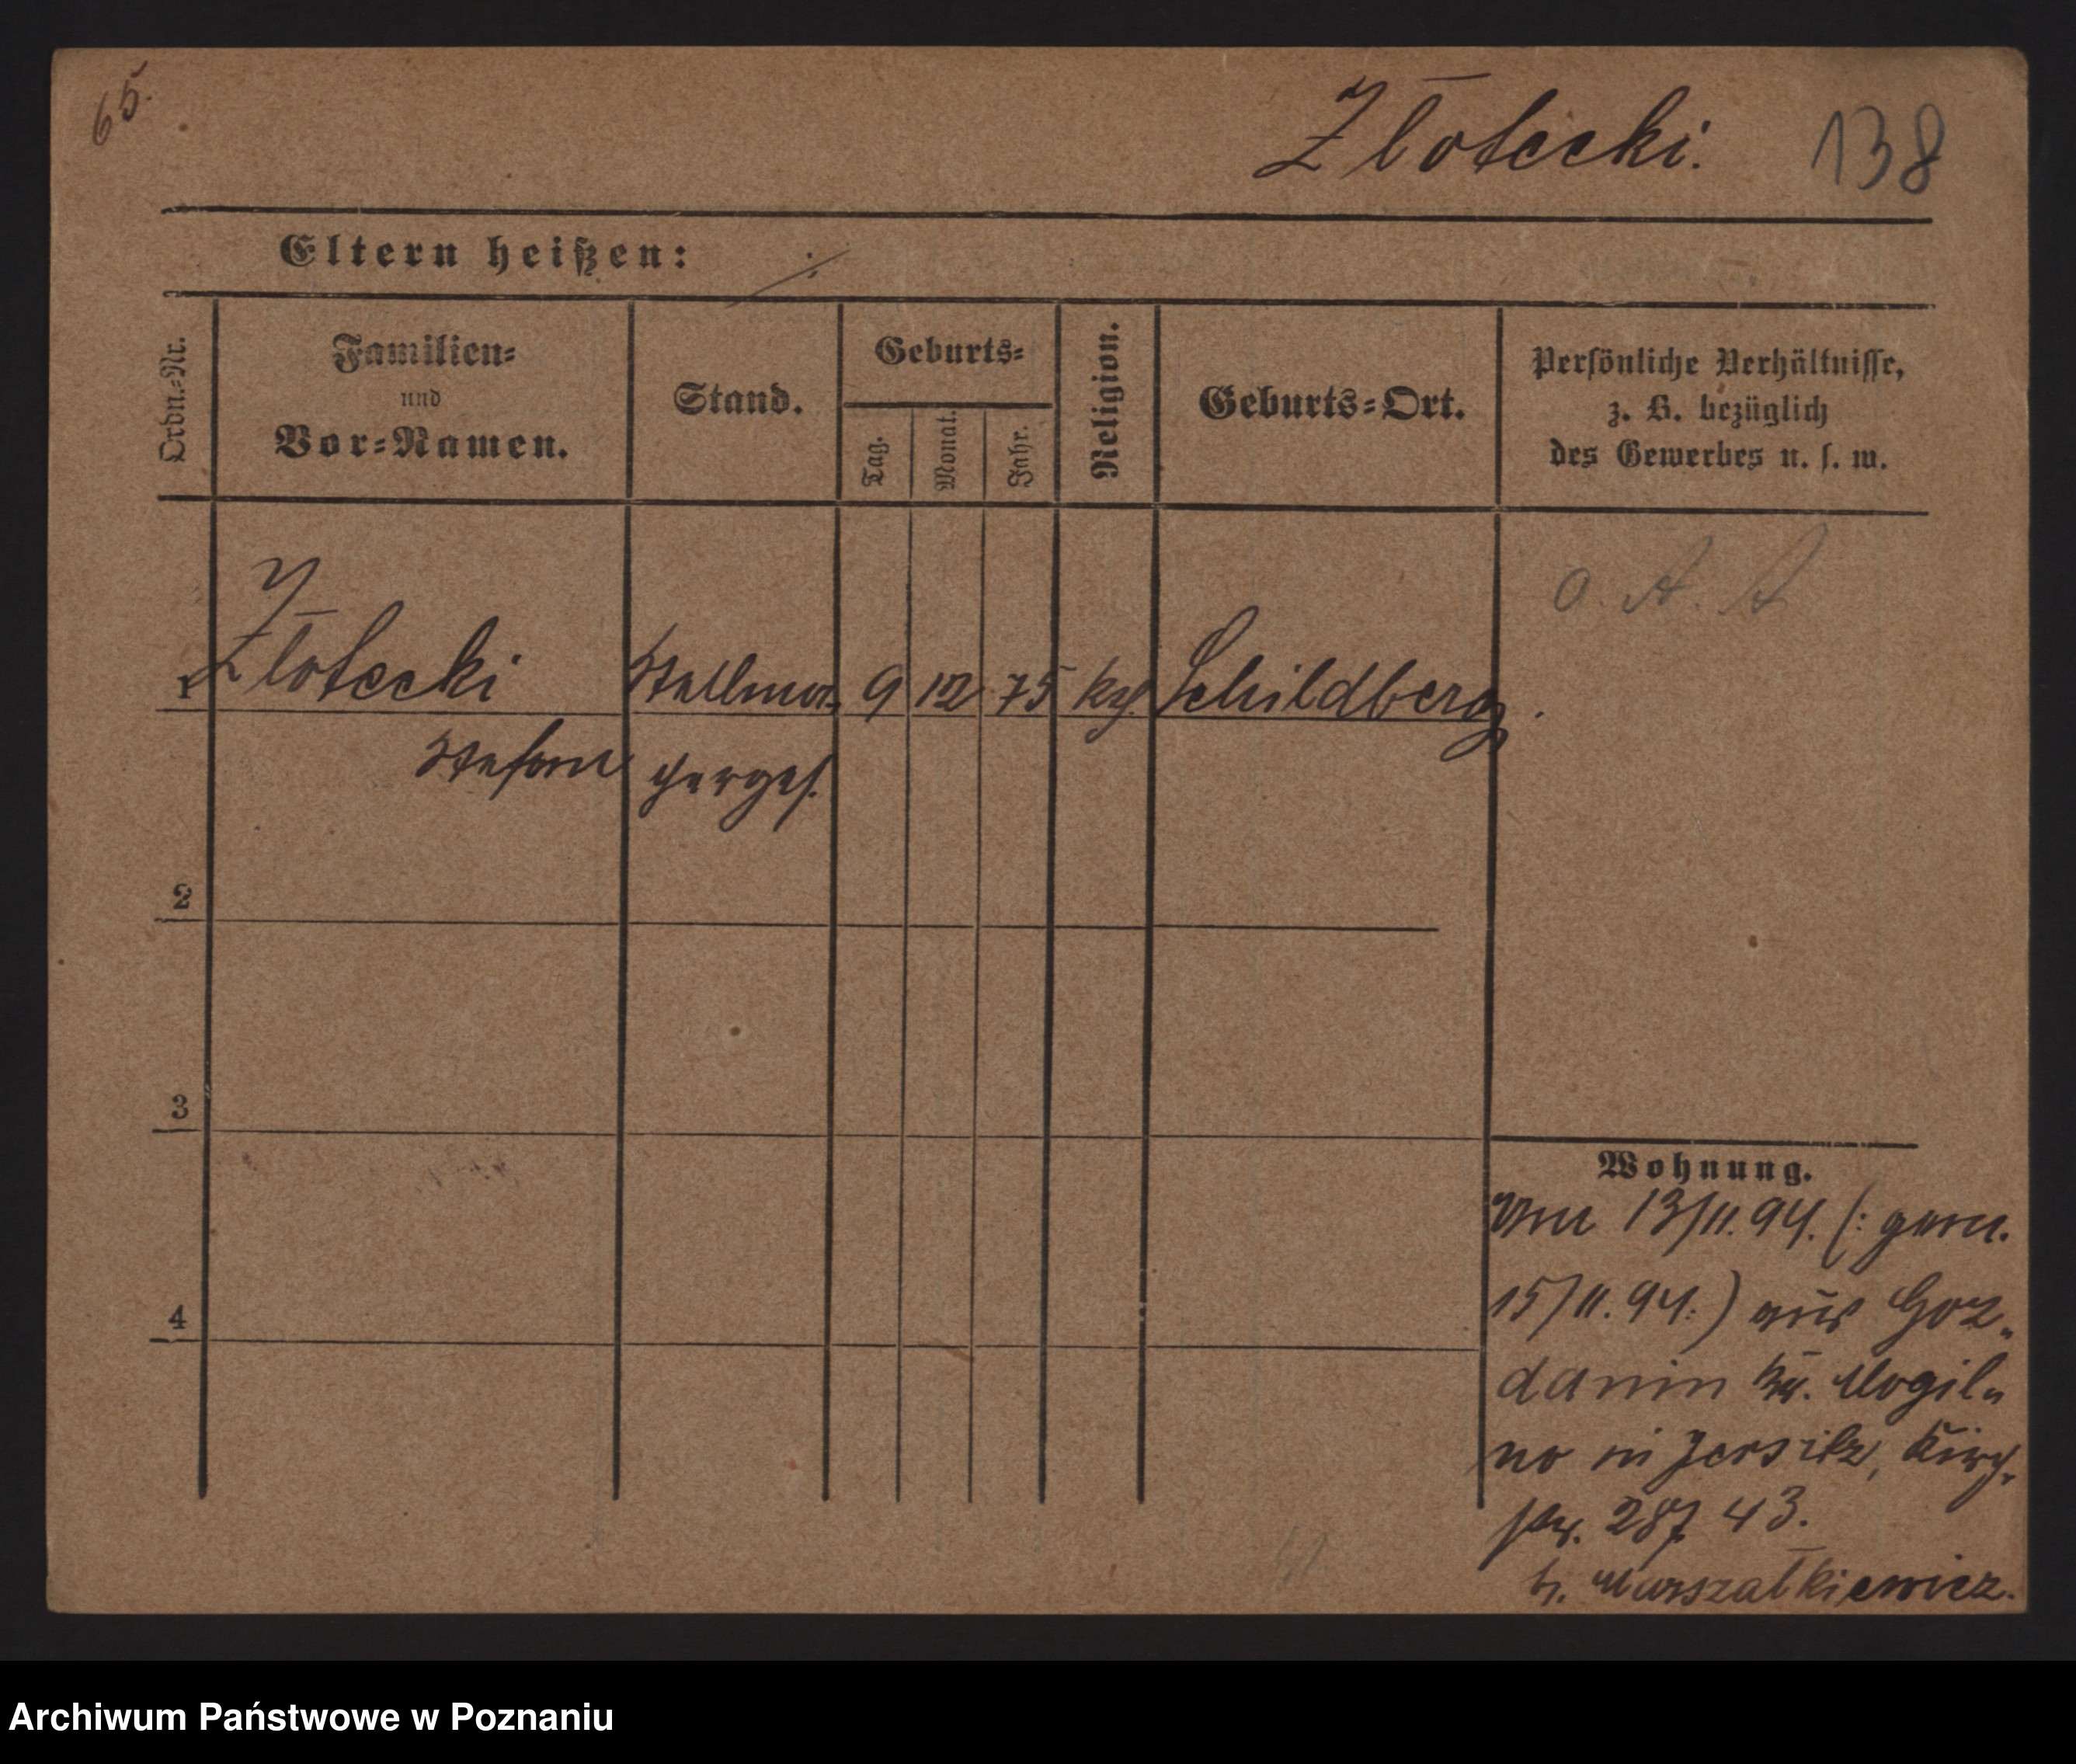 65.
Złotecki.
138
Eltern heißen: ./.
Ordn.-Nr.
Familien-
und
Vor-Namen.
Stand.
Geburts-
Tag.
Monat.
Jahr.
Religion.
Geburts-Ort.
Persönliche Verhältnisse,
z. B. bezüglich
des Gewerbes u. s. w.
O. A. A
1 Złotecki Stellma- 9 12 75 kath. Schildberg.
Stefan cherges.
2
3
4
Wohnung.
Vom 13/11.94. (: gem.
15/11.94:) aus Goz-
danin Kr. Mogil-
no in Jersitz, Kirch-
str. 287 43.
b. Marszałkiewicz.
Archiwum Państwowe w Poznaniu